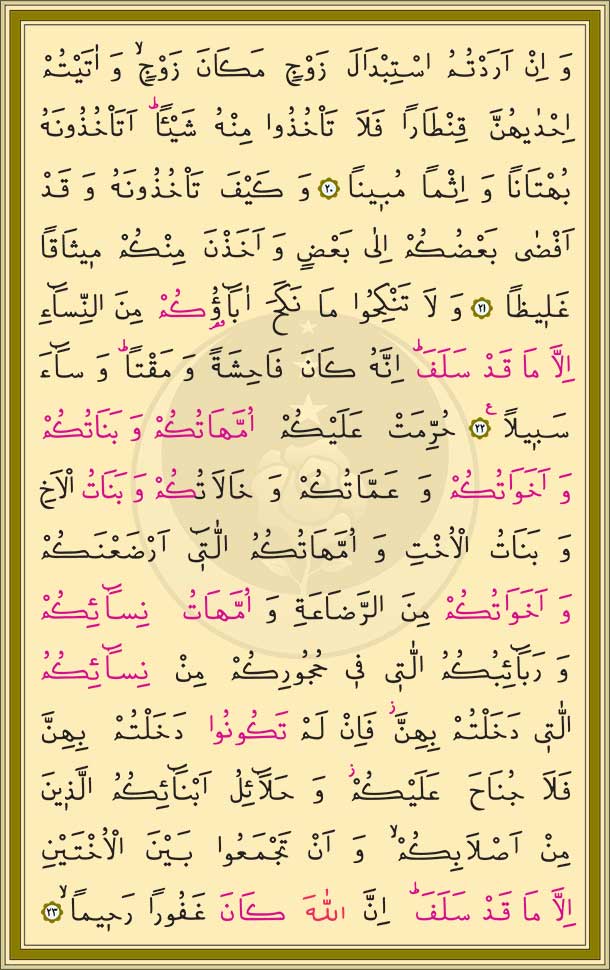 وَ اِنْ اَرَدْتُمُ اسْتِبْدَالَ زَوْجٍ مَكَانَ زَوْجٍۙ وَ اٰتَيْتُمْ
اِحْدٰيهُنَّ قِنْطَارًا فَلَا تَأْخُذُوا مِنْهُ شَيْئًاۜ اَتَأْخُذُونَهُ
بُهْتَانًا وَ اِثْمًا مُبٖينًا ﴿٢٠﴾ وَ كَيْفَ تَأْخُذُونَهُ وَ قَدْ
اَفْضٰى بَعْضُكُمْ اِلٰى بَعْضٍ وَ اَخَذْنَ مِنْكُمْ مٖيثَاقًا
غَلٖيظًا ﴿٢١﴾ وَ لَا تَنْكِحُوا مَا نَكَحَ اٰبَٓاؤُ۬كُمْ مِنَ النِّسَٓاءِ
اِلَّا مَا قَدْ سَلَفَۜ اِنَّهُ كَانَ فَاحِشَةً وَ مَقْتًاۜ وَ سَٓاءَ
سَبٖيلًاࣖ ﴿٢٢﴾ حُرِّمَتْ عَلَيْكُمْ اُمَّهَاتُكُمْ وَ بَنَاتُكُمْ
وَ اَخَوَاتُكُمْ وَ عَمَّاتُكُمْ وَ خَالَاتُكُمْ وَ بَنَاتُ الْاَخِ
وَ بَنَاتُ الْاُخْتِ وَ اُمَّهَاتُكُمُ الّٰتٖٓى اَرْضَعْنَكُمْ
وَ اَخَوَاتُكُمْ مِنَ الرَّضَاعَةِ وَ اُمَّهَاتُ نِسَٓائِكُمْ
وَ رَبَٓائِبُكُمُ الّٰتٖى فٖى حُجُورِكُمْ مِنْ نِسَٓائِكُمُ
الّٰتٖى دَخَلْتُمْ بِهِنَّؗ فَاِنْ لَمْ تَكُونُوا دَخَلْتُمْ بِهِنَّ
فَلَا جُنَاحَ عَلَيْكُمْؗ وَ حَلَٓائِلُ اَبْنَٓائِكُمُ الَّذٖينَ
مِنْ اَصْلَابِكُمْۙ وَ اَنْ تَجْمَعُوا بَيْنَ الْاُخْتَيْنِ
اِلَّا مَا قَدْ سَلَفَۜ اِنَّ اللّٰهَ كَانَ غَفُورًا رَحٖيمًاۙ ﴿٢٣﴾